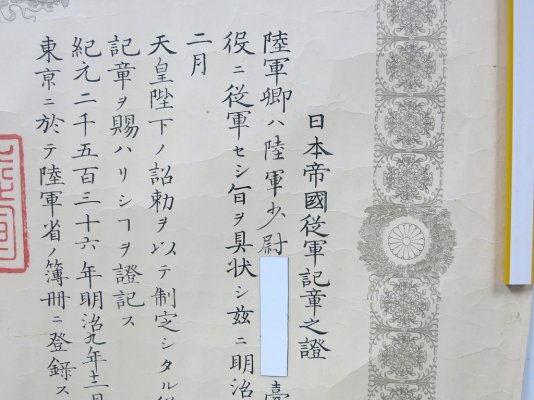 日本帝國従軍記章之證
陸軍卿ハ陸軍少尉 臺
役ニ従軍セシ旨ヲ具状シ茲ニ明治
二月
天皇陛下ノ詔勅ヲ以テ制定シタル従
記章ヲ賜ハリシヿヲ證記ス
紀元二千五百三十六年明治九年十二月
東京ニ於テ陸軍省ノ簿冊ニ登録ス